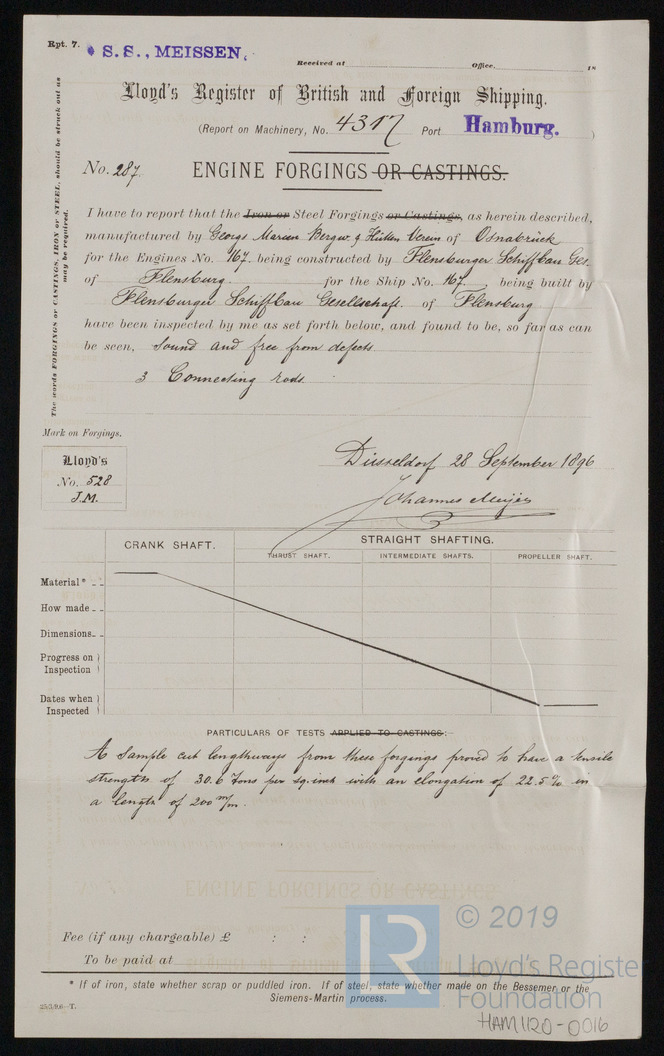 Rpt. 7.
S.S., MEISSEN.
Received at Office. 18
Lloyd's Register of British and Foreign Shipping.
(Report on Machinery, No. 4317 Port Hamburg. )
No. 287. ENGINE FORGINGS OR CASTINGS.
I have to report that the Iron or Steel Forgings or Castings, as herein described,
manufactured by Georgs Marien Bergw. & Hütten Verein of Osnabrück
for the Engines No. 167. being constructed by Flensburger Schiffbau Ges.
of Flensburg. for the Ship No. 167. being built by
Flensburger Schiffbau Gesellschaft. of Flensburg
have been inspected by me as set forth below, and found to be, so far as can
be seen, sound and free from defects
3 Connecting rods.
The words FORGINGS or CASTINGS, IRON or STEEL, should be struck out as
may be required.
Mark on Forgings.
Lloyd's
No. 528
J.M.
Düsseldorf 28 September 1896
Johannes Meijer
CRANK SHAFT. STRAIGHT SHAFTING.
THRUST SHAFT. INTERMEDIATE SHAFTS. PROPELLER SHAFT.
Material*
How made
Dimensions
Progress on
Inspection
Dates when
Inspected
PARTICULARS OF TESTS APPLIED TO CASTINGS:
A sample cut lengthways from these forgings proved to have a tensile
strength of 30.6 Tons per sq. inch with an elongation of 22.5 % in
a length of 200 m/m.
Fee (if any chargeable) £ : :
To be paid at
* If of iron, state whether scrap or puddled iron. If of steel, state whether made on the Bessemer or the
Siemens-Martin process.
© 2019
LR
Lloyd's Register
Foundation
HAM1120-0016